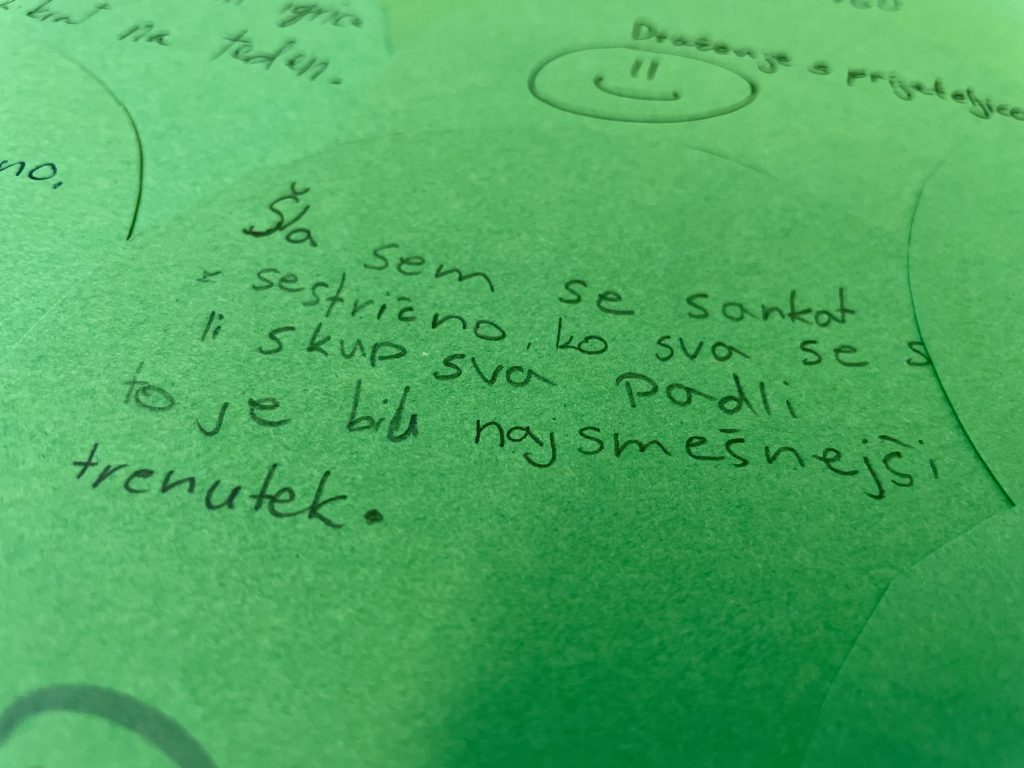 igrica
krat na teden.
no.
Druženje s prijateljico
Šla sem se sankat
s sestrično, ko sva se s
li skup sva padli
to je bil najsmešnejši
trenutek.